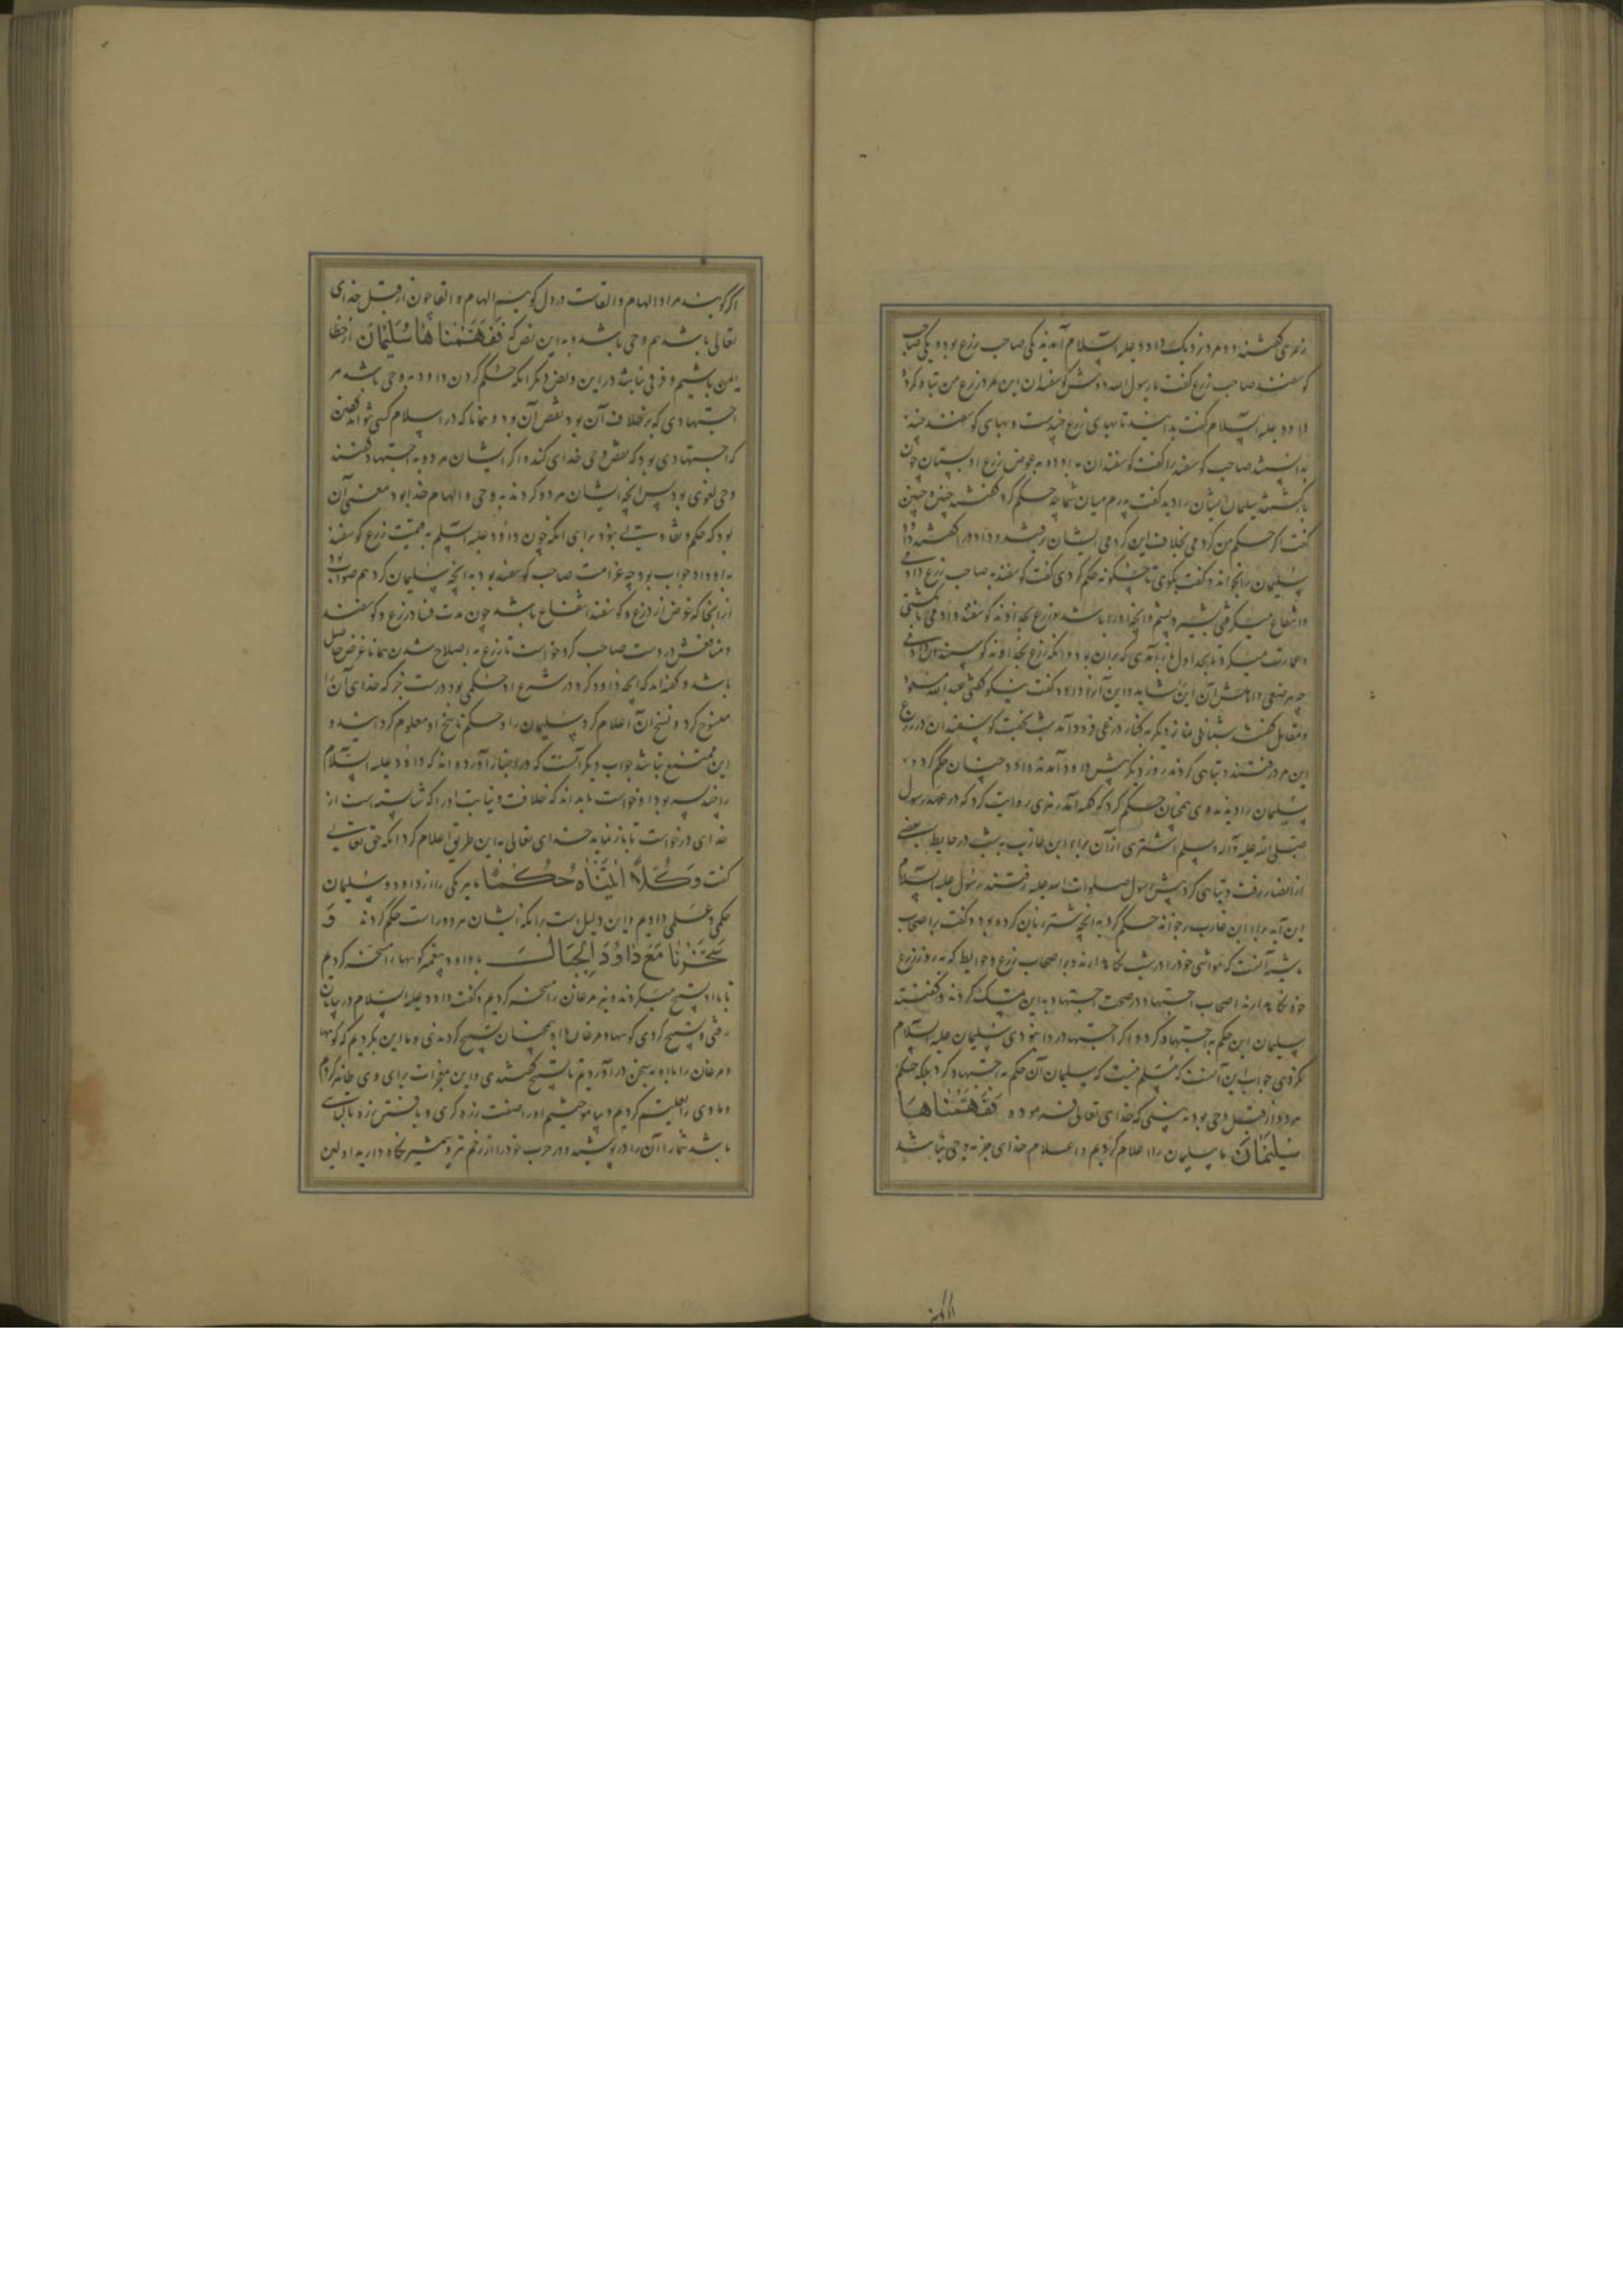 زهری گفتند دو مرد نزدیک داود علیه السلام آمدند یکی صاحب زرع بود و یکی صاحب
کوسفند صاحب زرع گفت یا رسول الله دوش کوسفندان این مرد زرع من تباه کرد
داود علیه السلام گفت بدانید تا بهای زرع چندست و بهای کوسفند چند
بدانستند صاحب کوسفند را گفت کوسفندان به او ده به عوض زرع او بستان چون
بازکشتند سلیمان ایشان را دید گفت پدرم میان شما چه حکم کرد گفتند چنین و چنین
گفت اگر حکم من کردمی بخلاف این کردمی ایشان رفتند و داود را گفتند داود
سلیمان را بخواند و گفت بگوی تا چگونه حکم کردی گفت کوسفند به صاحب زرع دادمی
تا انتفاع میگرفتی بشیر و پشم و آنچه او را باشد و زرع بخداوند کوسفند دادمی تا بکشتی
و عمارت میکرد تا بحد اول باز آمدی که بران بود و آنگه زرع بخداوند کوسپند
داود گفت نیکو گفتی عبد الله مسعود
و مقاتل گفتند شبانی نماز دیگر به کنار زرعی فرود آمد شب بخفت کوسپندان در زرع
این مرد رفتند و تباهی کردند روز دیگر پیش داود آمدند داود چنان حکم کرد و
سلیمان را دیدند وی همچنان حکم کرد که گفته آمد زهری روایت کرد که در عهد رسول
صلی الله علیه و آله و سلم اشتری از آن براء ابن عازب به شب در حایط بعضی
از انصار رفت و تباهی کرد پیش رسول صلوات الله علیه رفتند رسول علیه السلام
این آیه بر براء ابن عازب برخواند حکم کرد به آنچه شتر زیان کرده بود و گفت بر اصحاب
ماشیه آنست که مواشی خود را در شب نگاه دارند و بر اصحاب زرع و حوایط که به روز زرع
خود نگاه دارند اصحاب اجتهاد در صحت اجتهاد به این تمسک کردند و گفتند
سلیمان این حکم به اجتهاد کرد و اگر اجتهاد روا نبودی سلیمان علیه السلام
نکردی جواب این آنست که مسلم نیست که سلیمان آن حکم به اجتهاد کرد بلکه حکم
هر دو از قبل وحی بود نه بینی که خدای تعالی فرموده فَفَهَّمْنَاهَا
سُلَيْمَانَ ما سلیمان را اعلام کردیم و اعلام خدای جز به وحی نباشد
اگر گویند مراد الهام و القاست در دل گوییم الهام و القا چون از قبل خدای
تعالی باشد هم وحی باشد و به این نص که فَفَهَّمْنَاهَا سُلَيْمَانَ از خطا
ایمن باشیم و فرقی نباشد در این و نص دیگر آنکه حکم کردن داود به وحی باشد مر
اجتهادی که برخلاف آن بود نقض آن بود و همانا که در اسلام کسی نتواند گفتن
که اجتهادی بود که نقض وحی خدای کند و اگر ایشان هر دو به اجتهاد گفتند
وحی لغوی بود پس آنچه ایشان هر دو کردند به وحی و الهام خدا بود معنی آن
بود که حکم متفاوت نبود برای آنکه چون داود علیه السلم به قیمت زرع کوسفند
به او داد جواب بود چه غرامت صاحب کوسفند بود به آنچه سلیمان کرد هم صواب بود
از آنجا که غرض از زرع و کوسفند انتفاع باشد چون مدت فساد زرع و کوسفند
و منافعش در دست صاحب کرد خواست تا زرع به اصلاح شدن همانا غرض حاصل
باشد و گفته‌اند که آنچه داود کرد در شرع او حکمی بود درست جز که خدای آن را
منسوخ کرد و نسخ آن اعلام کرد سلیمان را و حکم ناسخ او معلوم گردانید و
این ممتنع نباشد جواب دیگر آنست که در اخبار آورده اند که داود علیه السلام
را چند پسر بود او خواست تا بداند که خلافت و نیابت او را که شایسته است از
خدای درخواست تا باز نماید خدای تعالی به این طریق اعلام کرد آنگه حق تعالی
گفت وَكُلًّا آتَيْنَاهُ حُكْمًا ما هر یکی را از داود و سلیمان
حکمی و علمی دادیم و این دلیل است برآنکه ایشان هر دو راست حکم کردند وَ
سَخَّرْنَا مَعَ دَاوُدَ الْجِبَالَ با داود پیغمبر کوهها را مسخر کردیم
تا با او تسبیح میکردند و نیز مرغان را مسخر کردیم و گفت داود علیه السلام در بیابان
رفتی و تسبیح کردی کوهها و مرغان با او همچنان تسبیح کردندی و ما این بکردیم که کوهها
و مرغان را با او به سخن در آوردیم تا تسبیح گفتندی و این معجزات برای وی ظاهر کردیم
و ما وی را تعلیم کردیم و بیاموختیم او را صنعت زره گری و بافتن زره تا لباسی
باشد شما را آن را در پوشید و در حرب خود را از زخم تیر و شمشیر نگاه دارید اولین